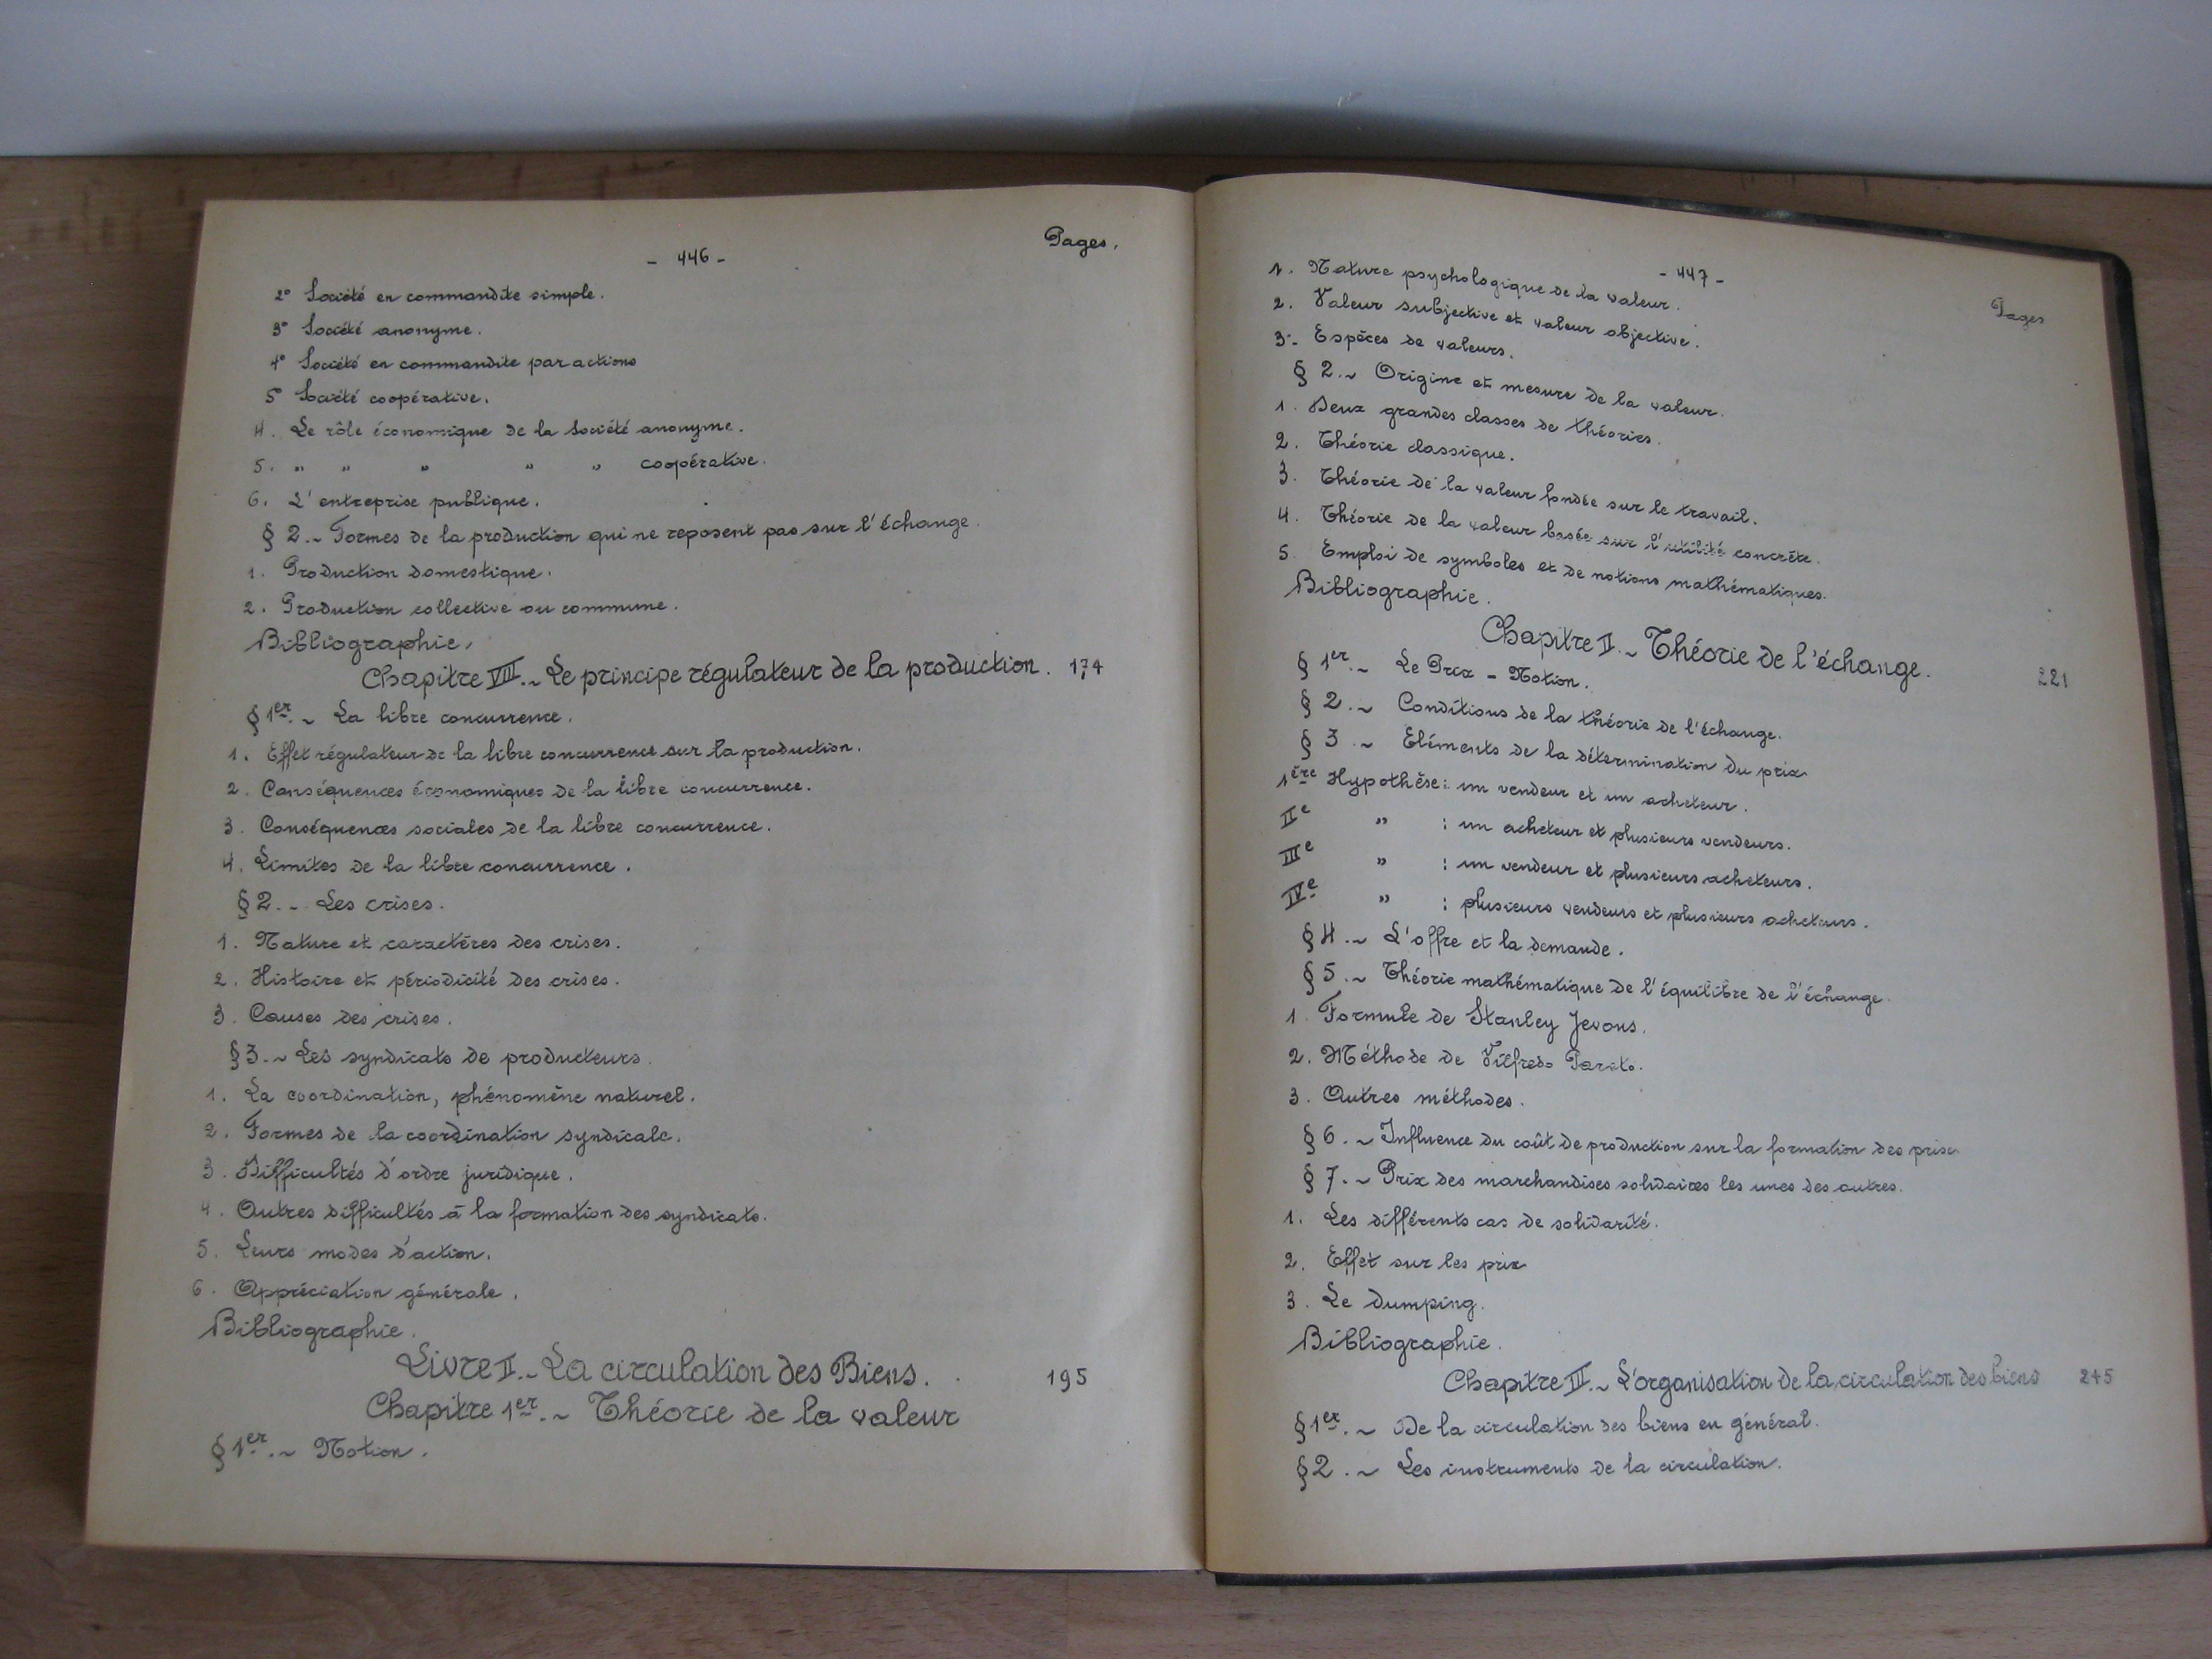 - 446 -
Pages.
2° Société en commandite simple.
3° Société anonyme.
4° Société en commandite par actions
5° Société coopérative.
4. Le rôle économique de la Société anonyme.
5. " " " " " coopérative.
6. L'entreprise publique.
§ 2.~ Formes de la production qui ne reposent pas sur l'échange.
1. Production domestique.
2. Production collective ou commune.
Bibliographie.
Chapitre VIII.~ Le principe régulateur de la production. 174
§ 1er.~ La libre concurrence.
1. Effet régulateur de la libre concurrence sur la production.
2. Conséquences économiques de la libre concurrence.
3. Conséquences sociales de la libre concurrence.
4. Limites de la libre concurrence.
§ 2.~ Les crises.
1. Nature et caractères des crises.
2. Histoire et périodicité des crises.
3. Causes des crises.
§ 3.~ Les syndicats de producteurs.
1. La coordination, phénomène naturel.
2. Formes de la coordination syndicale.
3. Difficultés d'ordre juridique.
4. Autres difficultés à la formation des syndicats.
5. Leurs modes d'action.
6. Appréciation générale.
Bibliographie.
Livre II.~ La circulation des Biens. . 195
Chapitre 1er.~ Théorie de la valeur
§ 1er.~ Notion.
- 447 -
Pages
1. Nature psychologique de la valeur.
2. Valeur subjective et valeur objective.
3.- Espèces de valeurs.
§ 2.~ Origine et mesure de la valeur.
1. Deux grandes classes de théories.
2. Théorie classique.
3. Théorie de la valeur fondée sur le travail.
4. Théorie de la valeur basée sur l'utilité concrète.
5. Emploi de symboles et de notions mathématiques.
Bibliographie.
Chapitre II.~ Théorie de l'échange. 221
§ 1er.~ Le Prix - Notion.
§ 2.~ Conditions de la théorie de l'échange.
§ 3.~ Eléments de la détermination du prix
1ère Hypothèse: un vendeur et un acheteur.
IIe " : un acheteur et plusieurs vendeurs.
IIIe " : un vendeur et plusieurs acheteurs.
IVe " : plusieurs vendeurs et plusieurs acheteurs.
§ 4.~ L'offre et la demande.
§ 5.~ Théorie mathématique de l'équilibre de l'échange.
1. Formule de Stanley Jevons.
2. Méthode de Vilfredo Pareto.
3. Autres méthodes.
§ 6.~ Influence du coût de production sur la formation des prix
§ 7.~ Prix des marchandises solidaires les unes des autres.
1. Les différents cas de solidarité.
2. Effet sur les prix
3. Le dumping.
Bibliographie.
Chapitre III.~ L'organisation de la circulation des biens 245
§ 1er.~ De la circulation des biens en général.
§ 2.~ Les instruments de la circulation.